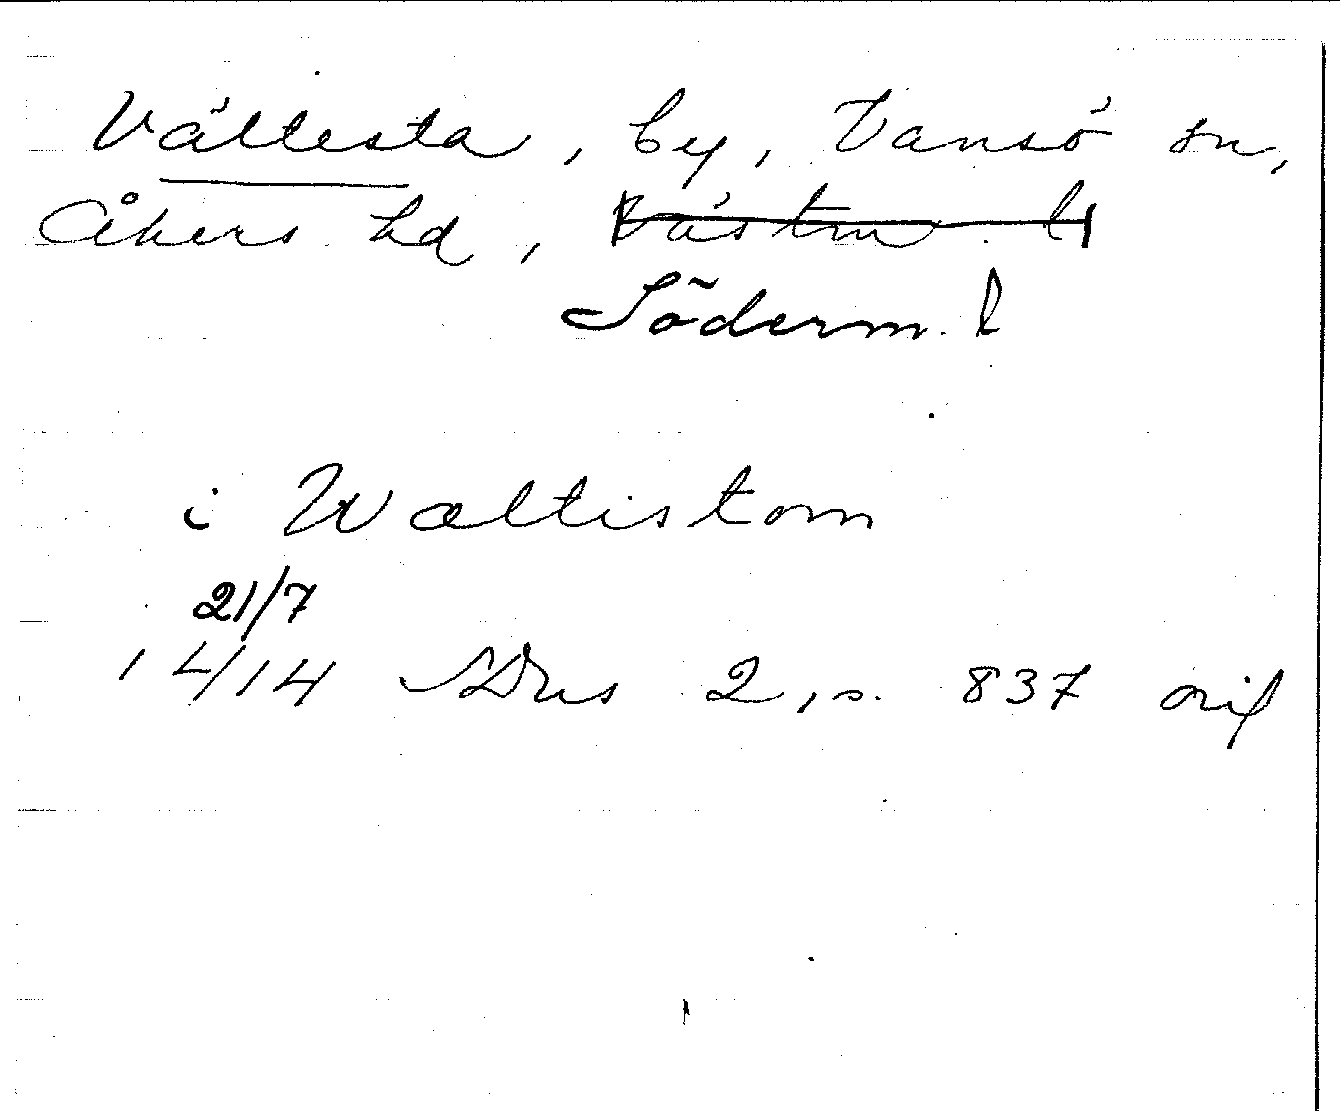 Vällesta, by, Vansö sn,
Åkers hd, Västm. l
Söderm. l
i Wæltistom
21/7
1414 SDns 2, s. 837 orig